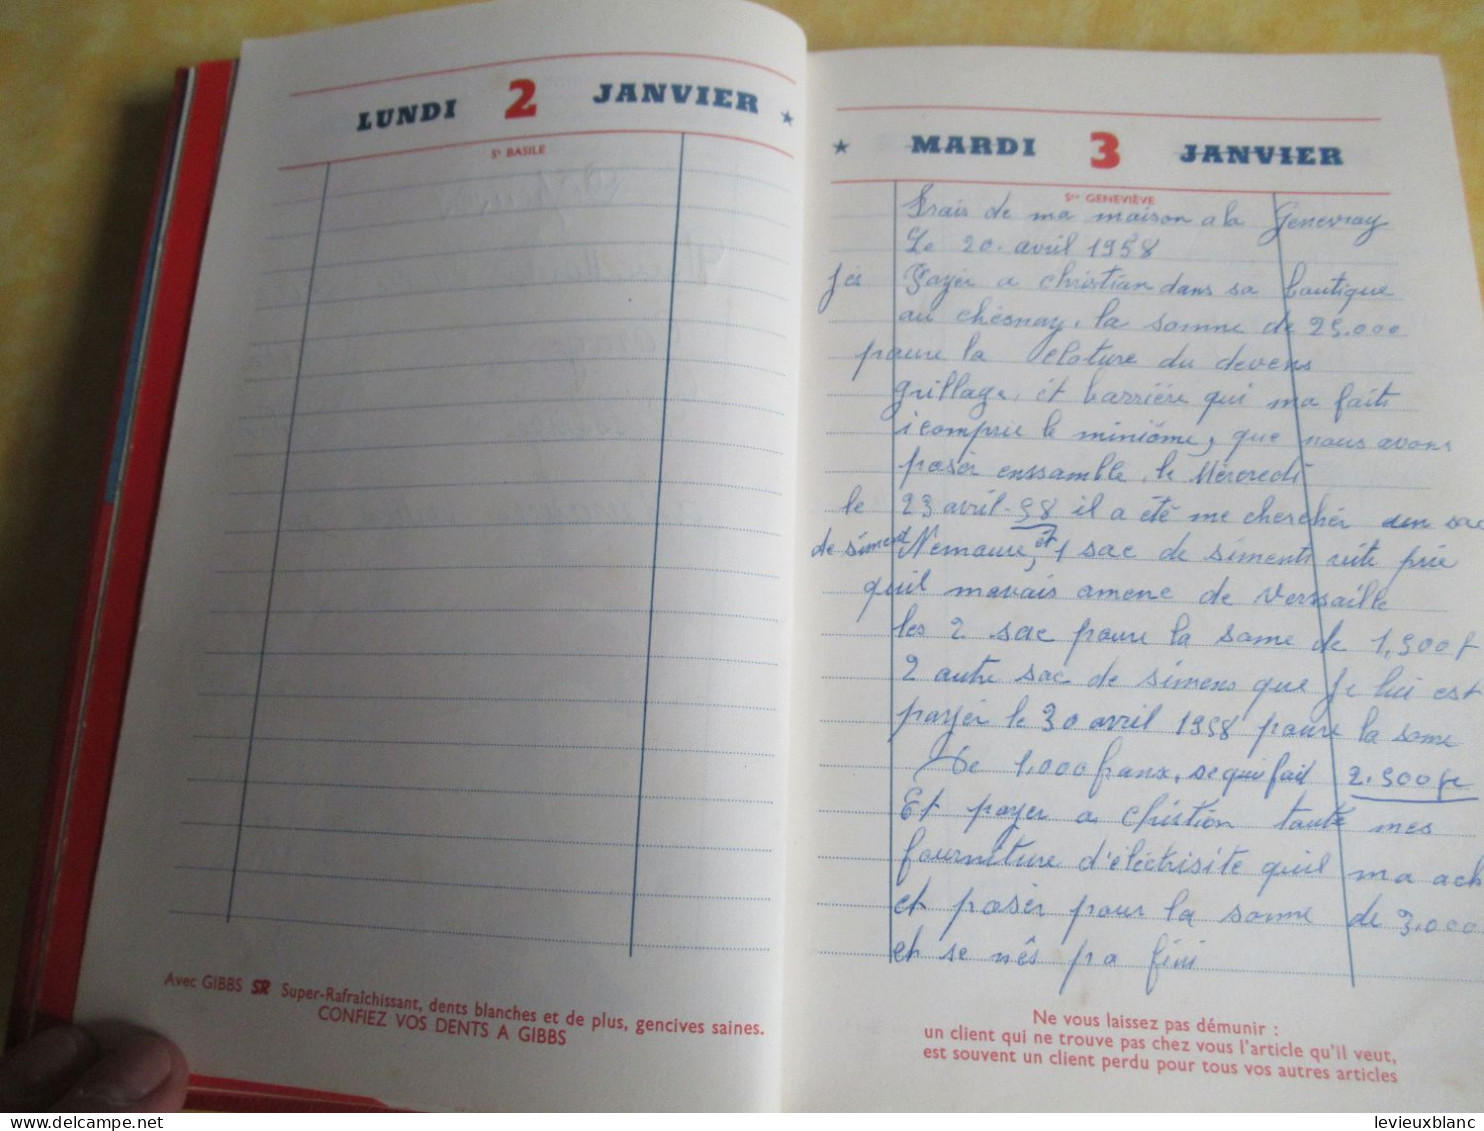 LUNDI 2 JANVIER
St BASILE
Avec GIBBS SR Super-Rafraîchissant, dents blanches et de plus, gencives saines.
CONFIEZ VOS DENTS A GIBBS
MARDI 3 JANVIER
Ste GENEVIÈVE
Frais de ma maison a la Genevray
Le 20. avril 1958
jes Payer a christian dans sa boutique
au chèsnay, la somme de 25.000
poure la cloture du devens
grillage, et barrière qui ma faits
icomprie le miniôme, que nous avons
posèr enssamble, le Mercredi
le 23 avril-58 il a été me chercher un sac
de siment Nemoure, et 1 sac de siments vite prie
quil mavais amene de Verssaille
les 2 sac poure la some de 1,500f
2 autre sac de simens que je lui est
payèr le 30 avril 1958 poure la some
De 1.000 franx, se qui fait 2.500fr
Et payer a christion toute mes
fourniture d'éléctrisite quil ma ach
et posèr pour la somme de 3.000
et se nês pa fini
Ne vous laissez pas démunir :
un client qui ne trouve pas chez vous l'article qu'il veut,
est souvent un client perdu pour tous vos autres articles
levieuxblanc